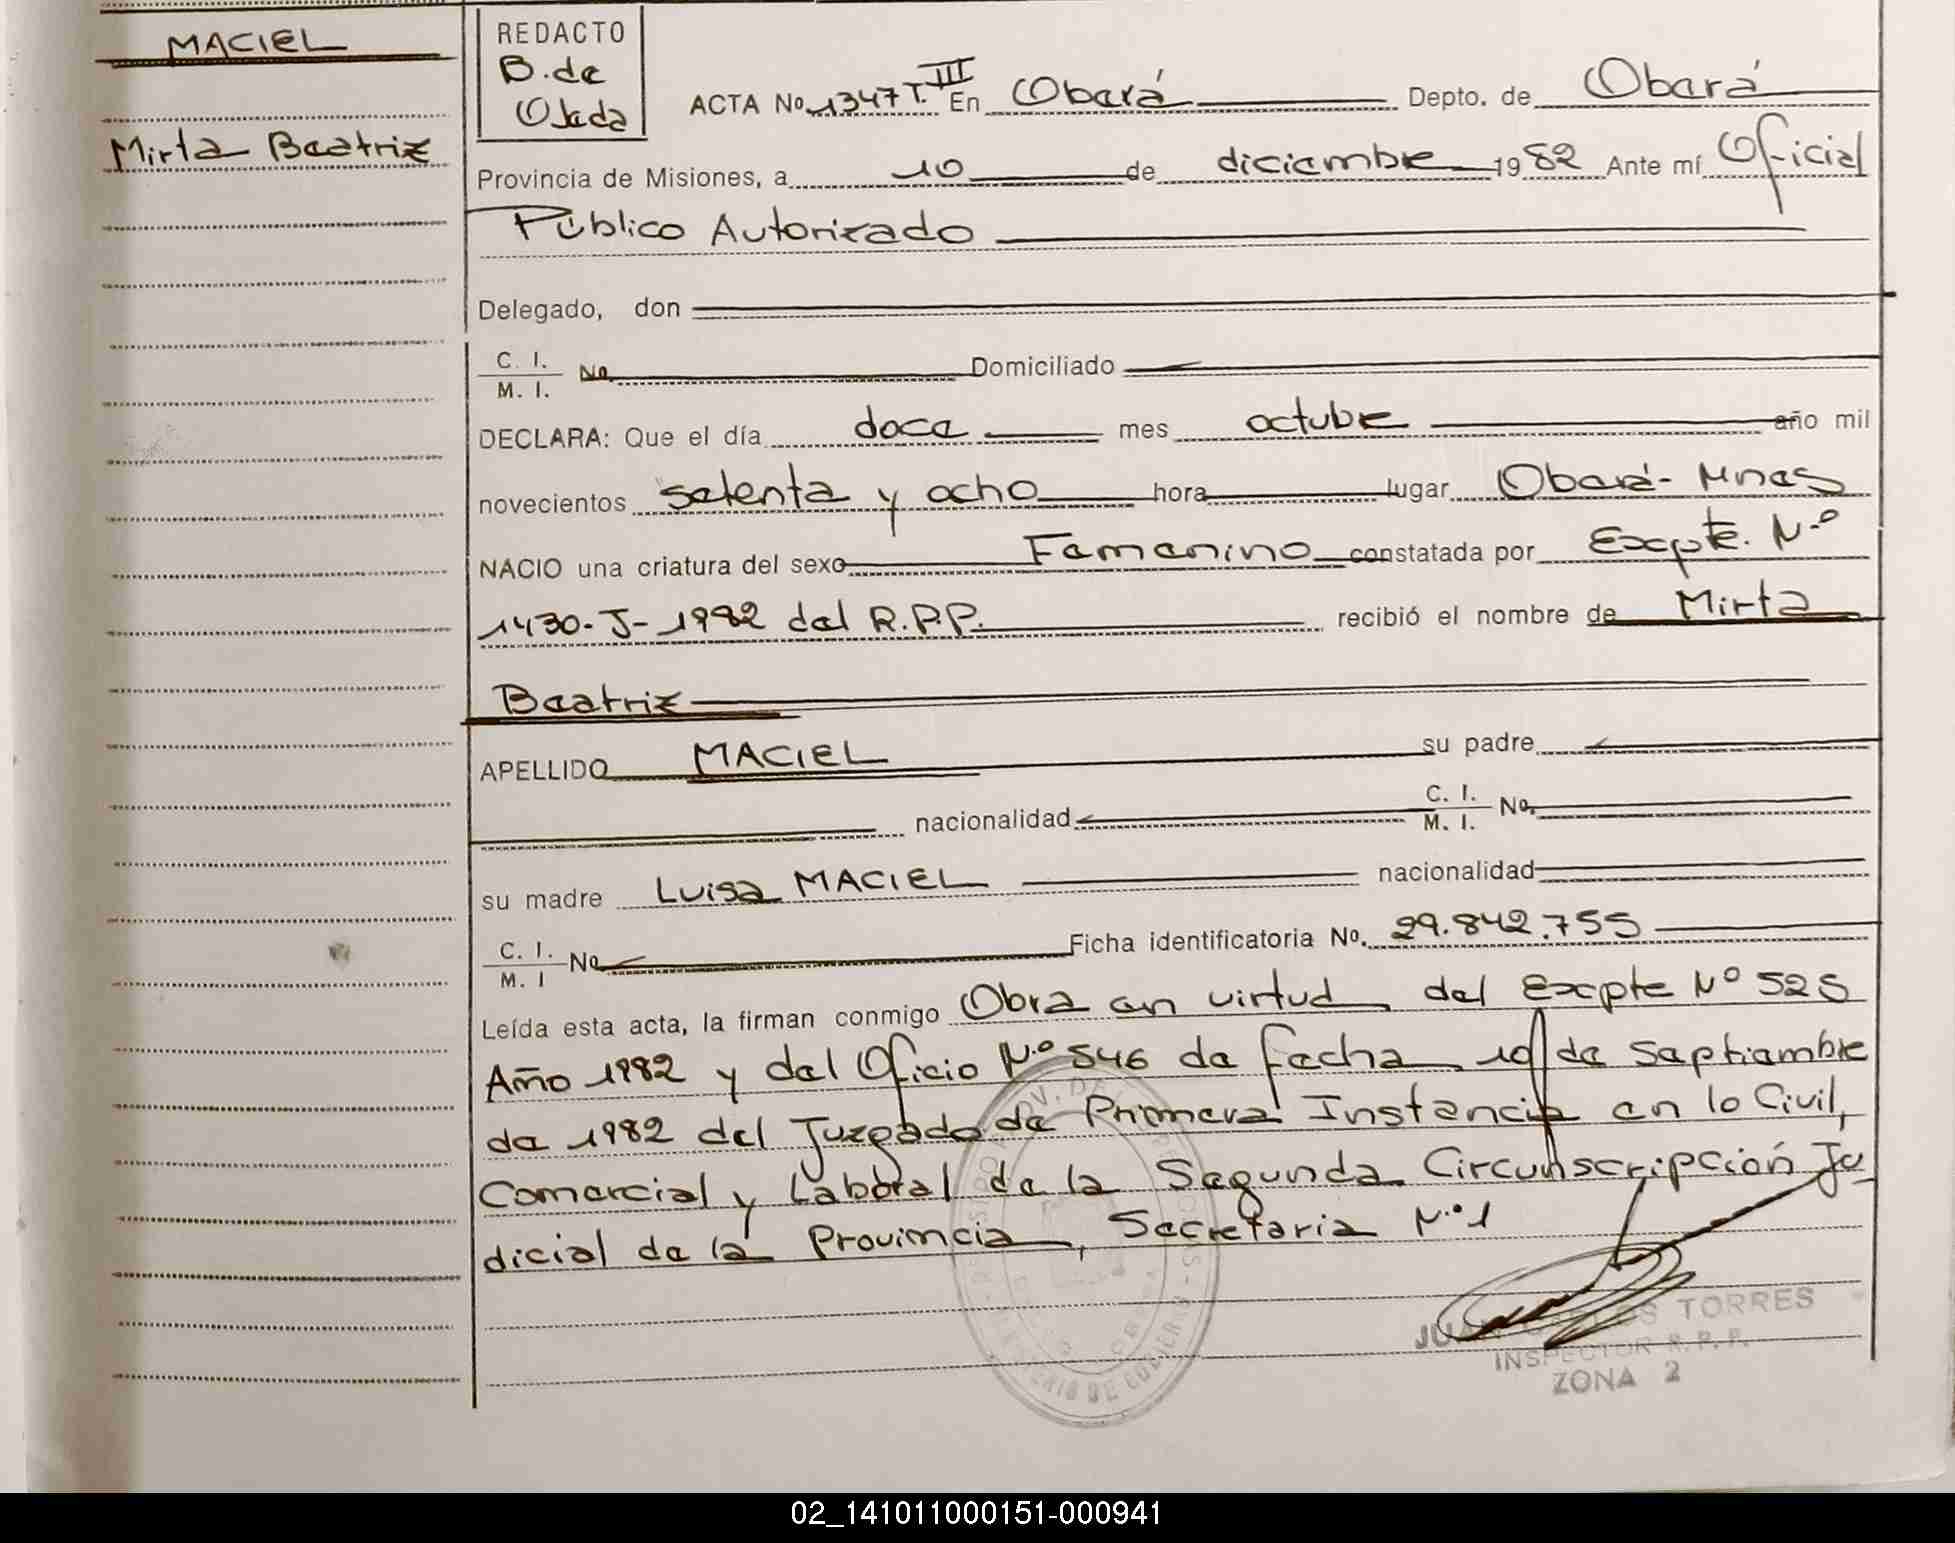 MACIEL
Mirta Beatriz
REDACTO
B. de
Ojeda
ACTA No. 1347 T. III En Oberá Depto. de Oberá
Provincia de Misiones, a 10 de diciembre 1982 Ante mí Oficial
Público Autorizado
Delegado, don
C. I.
M. I. No. Domiciliado
DECLARA: Que el día doce mes octubre año mil
novecientos setenta y ocho hora lugar Oberá - Mnes
NACIO una criatura del sexo Femenino constatada por Expte. Nº
1430-J-1982 del R.P.P. recibió el nombre de Mirta
Beatriz
APELLIDO MACIEL su padre
nacionalidad C. I. M. I. No.
su madre Luisa MACIEL nacionalidad
C. I. M. I No Ficha identificatoria No. 29.842.755
Leída esta acta, la firman conmigo Obra en virtud del Expte Nº 525
Año 1982 y del Oficio Nº 546 de fecha 10 de Septiembre
de 1982 del Juzgado de Primera Instancia en lo Civil,
Comercial y Laboral de la Segunda Circunscripción Ju
dicial de la Provincia, Secretaria Nº 1
JUAN CARLOS TORRES
INSPECTOR R. P. P.
ZONA 2
02_141011000151-000941